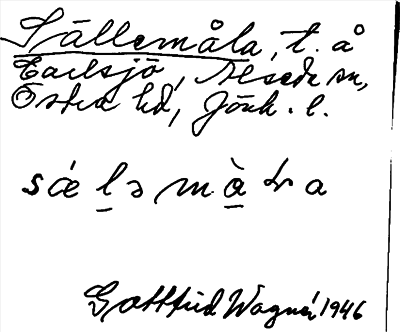 Sällemåla, t. å
Carlsjö, Alseda sn,
Östra hd, Jönk. l.
sǽl̲ə m à̲ɽa
Gottfrid Wagnér 1946